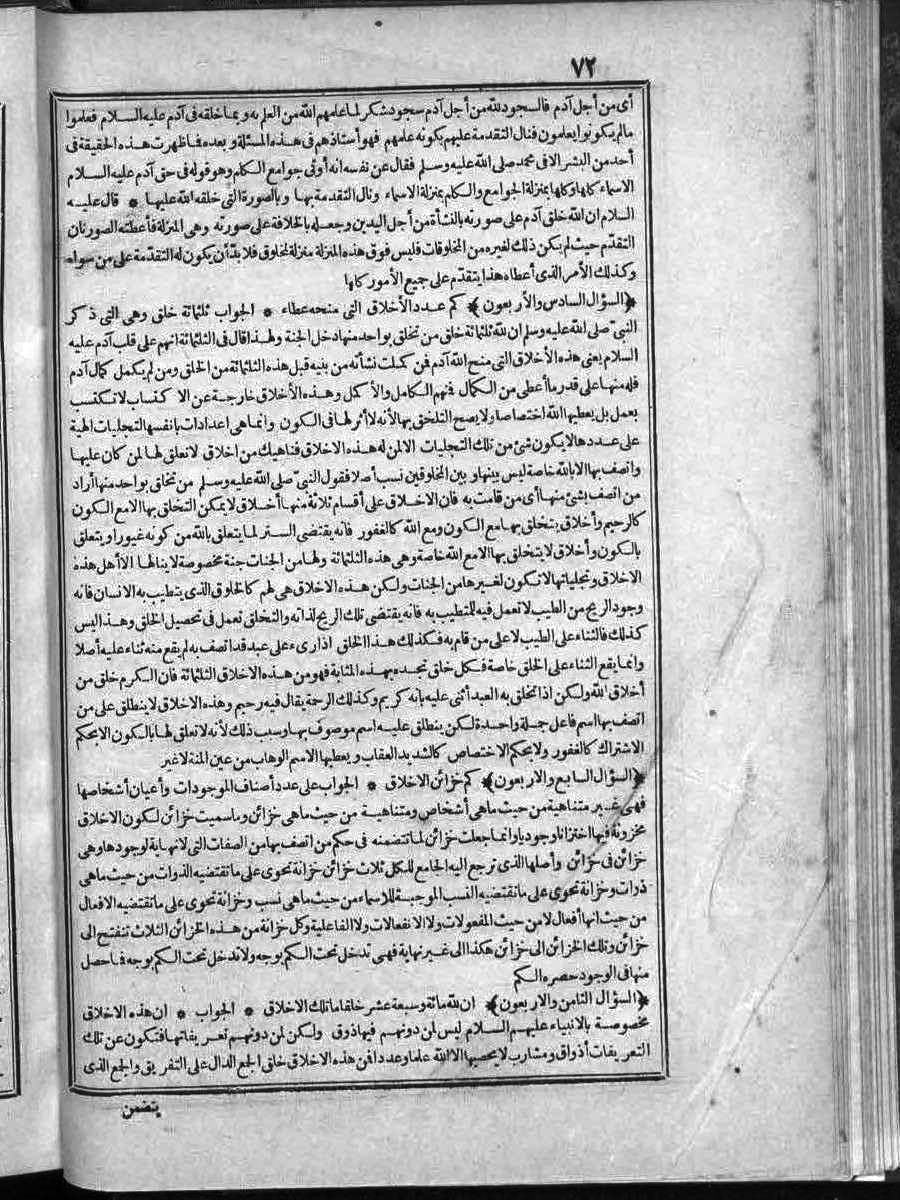 ٧٢
أى من أجل آدم فالسجود لله من أجل آدم سجود شكر لما علمهم الله من العلم به وبما خلقه فى آدم عليه السلام فعلموا
مالم يكونوا يعلمون فنال التقدمة عليهم بكونه علمهم فهو أستاذهم فى هذه المسئلة وبعده فما ظهرت هذه الحقيقة فى
أحد من البشر الا فى محمد صلى الله عليه وسلم فقال عن نفسه انه أوتى جوامع الكلم وهو قوله فى حق آدم عليه السلام
الاسماء كلها وكلها بمنزلة الجوامع والكلم بمنزلة الاسماء ونال التقدمة بها وبالصورة التى خلقه الله عليها * قال عليه
السلام ان الله خلق آدم على صورته بالنشأة من أجل اليدين وجعله بالخلافة على صورته وهى المنزلة فأعطته الصورتان
التقدم حيث لم يكن ذلك لغيره من المخلوقات فليس فوق هذه المنزلة منزلة لمخلوق فلا بد أن يكون له التقدمة على من سواه
وكذلك الأمر الذى أعطاه هذا يتقدم على جميع الأمور كلها
﴿السؤال السادس والاربعون﴾ كم عدد الأخلاق التى منحه عطاء * الجواب ثلثمائة خلق وهى التى ذكر
النبى صلى الله عليه وسلم ان لله ثلثمائة خلق من تخلق بواحد منها دخل الجنة ولهذا قال فى الثلثمائة انهم على قلب آدم عليه
السلام يعنى هذه الأخلاق التى منح الله آدم فمن كملت نشأته من بنيه قبل هذه الثلثمائة من الخلق ومن لم يكمل كمال آدم
فله منها على قدر ما أعطى من الكمال فمنهم الكامل والأكمل وهذه الأخلاق خارجة عن الاكتساب لا تكتسب
بعمل بل يعطيها الله اختصاصا ولا يصح التخلق بها لأنه لا أثر لها فى الكون وانما هى اعدادات بانفسها لتجليات الهية
على عددها لا يكون شئ من تلك التجليات الا لمن له هذه الاخلاق فناهيك من اخلاق لا تعلق لها لمن كان عليها
واتصف بها الا بالله خاصة ليس بينها وبين المخلوقين نسب أصلا فقول النبى صلى الله عليه وسلم من تخلق بواحد منها أراد
من اتصف بشئ منها أى من قامت به فان الاخلاق على أقسام ثلاثة منها أخلاق لا يمكن التخلق بها الا مع الكون
كالرحيم وأخلاق يتخلق بها مع الكون ومع الله كالغفور فانه يقتضى الستر لما يتعلق بالله من كونه غيورا ويتعلق
بالكون وأخلاق لا يتخلق بها الا مع الله خاصة وهى هذه الثلثمائة ولها من الجنات جنة مخصوصة لا ينالها الا أهل هذه
الاخلاق وتجلياتها لا تكون لغيرها من الجنات ولكن هذه الاخلاق هى لهم كالخلوق الذى يتطيب به الانسان فانه
وجود الريح من الطيب لا تعمل فيه للمتطيب به فانه يقتضى تلك الريح لذاته والتخلق تعمل فى تحصيل الخلق وهذا ليس
كذلك فالثناء على الطيب لا على من قام به فكذلك هذا الخلق اذا رىء على عبد قد اتصف به لم يقع منه ثناء عليه أصلا
وانما يقع الثناء على الخلق خاصة فكل خلق تجده بهذه المثابة فهو من هذه الاخلاق الثلثمائة فان الكرم خلق من
أخلاق الله ولكن اذا تخلق به العبد أثنى عليه بانه كريم وكذلك الرحمة يقال فيه رحيم وهذه الاخلاق لا ينطلق على من
اتصف بها اسم فاعل جملة واحدة لكن ينطلق عليه اسم موصوف بها وسبب ذلك لأنه لا تعلق لها بالكون الا بحكم
الاشتراك كالغفور ولا بحكم الاختصاص كالشديد العقاب ويعطيها الاسم الوهاب من عين المنة لا غير
﴿السؤال السابع والاربعون﴾ كم خزائن الاخلاق * الجواب على عدد أصناف الموجودات وأعيان أشخاصها
فهى غير متناهية من حيث ما هى أشخاص ومتناهية من حيث ما هى خزائن وما سميت خزائن لكون الاخلاق
مخزونة فيها اختزانا وجوديا وانما جعلت خزائن لما تتضمنه فى حكم من اتصف بها من الصفات التى لا نهاية لوجودها وهى
خزائن فى خزائن وأصلها الذى ترجع اليه الجامع للكل ثلاث خزائن خزانة تحوى على ما تقتضيه الذوات من حيث ما هى
ذوات وخزانة تحوى على ما تقتضيه النسب الموجبة للاسماء من حيث ما هى نسب وخزانة تحوى على ما تقتضيه الافعال
من حيث انها أفعال لا من حيث المفعولات ولا الانفعالات ولا الفاعلية وكل خزانة من هذه الخزائن الثلاث تنفتح الى
خزائن وتلك الخزائن الى خزائن هكذا الى غير نهاية فهى تدخل تحت الكم بوجه ولا تدخل تحت الكم بوجه فما حصل
منها فى الوجود حصره الكم
﴿السؤال الثامن والاربعون﴾ ان لله مائة وسبعة عشر خلقا ما تلك الاخلاق * الجواب * ان هذه الاخلاق
مخصوصة بالانبياء عليهم السلام ليس لمن دونهم فيها ذوق ولكن لمن دونهم تعريفاتها فتكون عن تلك
التعريفات أذواق ومشارب لا يحصيها الا الله علما وعددا فمن هذه الاخلاق خلق الجمع الدال على التفريق والجمع الذى
يتضمن